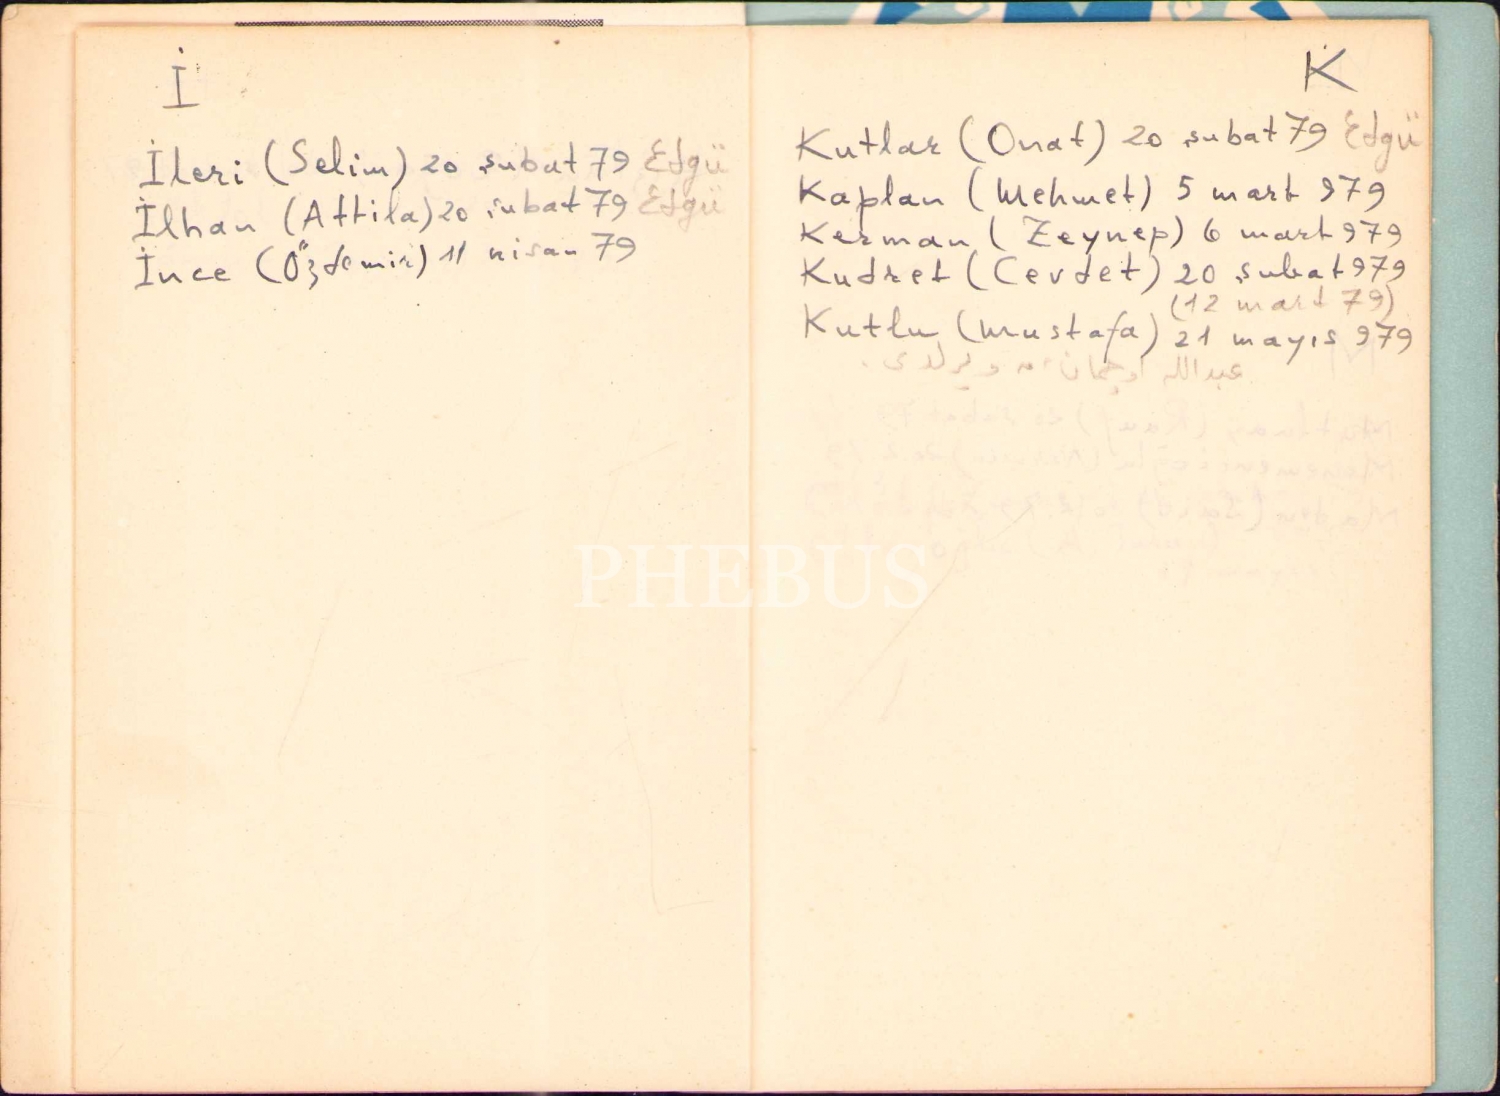 İ
İleri (Selim) 20 şubat 79 Edgü
İlhan (Attila) 20 şubat 79 Edgü
İnce (Özdemir) 11 nisan 79
K
Kutlar (Onat) 20 şubat 79 Edgü
Kaplan (Mehmet) 5 mart 979
Kerman (Zeynep) 6 mart 979
Kudret (Cevdet) 20 şubat 979
(12 mart 79)
Kutlu (Mustafa) 21 mayıs 979
عبدالله
PHEBUS